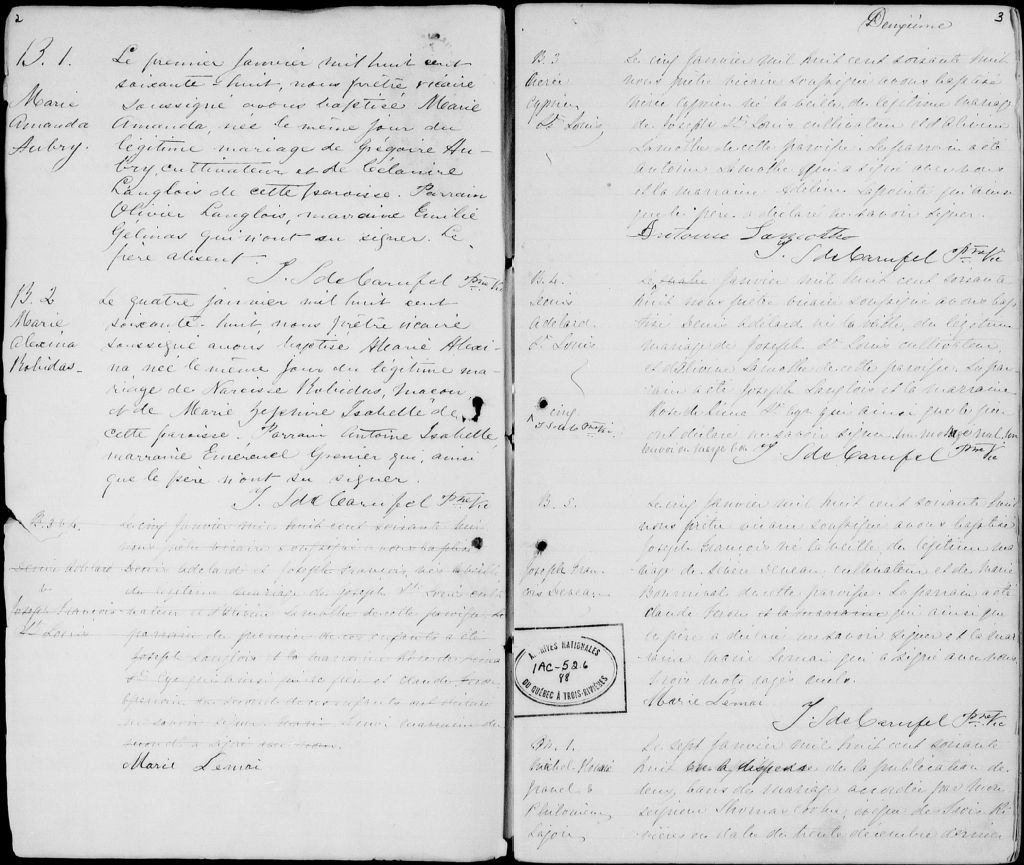 2
B. 1.
Marie
Amanda
Aubry.
Le premier Janvier mil huit cent
soixante-huit, nous prêtre vicaire
soussigné avons baptisé Marie
Amanda, née le même jour du
légitime mariage de Grégoire Au-
bry, cultivateur et de Célanire
Langlois de cette paroisse. Parrain
Olivier Langlois, marraine Emilie
Gélinas qui n'ont su signer. Le
père absent.
J. S de Carufel Ptre Vic
B. 2
Marie
Alexina
Robidas.
Le quatre janvier mil huit cent
soixante-huit, nous prêtre vicaire
soussigné avons baptisé Marie Alexi-
na née le même jour du légitime ma-
riage de Narcisse Robidas, maçon,
et de Marie Zéphire Isabelle de
cette paroisse. Parrain Antoine Isabelle,
marraine Grenier qui, ainsi
que le père n'ont su signer.
J. S de Carufel Ptre Vic
B. 3 & 4.
Denis Adélard
&
Joseph François
St Louis
Le cinq Janvier mil huit cent soixante huit
nous prêtre vicaire soussigné avons baptisé
Denis Adélard et Joseph François, nés la veille
du légitime mariage de Joseph St Louis culti-
vateur et d'Olivine Lamothe de cette paroisse. Le
parrain du premier de ces enfants a été
Joseph Langlois et la marraine Rose de Lima
St Cyr qui ainsi que le père et
du second de ces enfants ont déclaré
ne savoir signer. Marie Lemai marraine du
second a signé avec nous.
Marie Lemai
Deuxième
3
B. 3
Cyprien
St Louis,
Le cinq Janvier mil huit cent soixante huit
nous prêtre vicaire soussigné avons baptisé
Cyprien né la veille, du légitime mariage
de Joseph St Louis cultivateur et d'Olivine
Lamothe de cette paroisse. Le parrain a été
Antoine Lamothe qui a signé avec nous
et la marraine Adeline Lapointe qui ainsi
que le père a déclaré ne savoir signer.
Antoine Lamothe
J. S de Carufel Ptre Vic
B. 4.
Denis
Adélard
St Louis
Le quatre Janvier mil huit cent soixante
huit nous prêtre vicaire soussigné avons bap-
tisé Denis Adélard né la veille, du légitime
mariage de Joseph St Louis cultivateur,
et d'Olivine Lamothe de cette paroisse. Le par-
rain a été Joseph Langlois et la marraine
Rose de Lima St Cyr qui ainsi que le père
ont déclaré ne savoir signer. un mot rayé nul. un
renvoi en marge bon
^ cinq
J. S de C Ptre Vic
J. S de Carufel Ptre Vic
B. 5.
Joseph Fran-
çois Deneau
Le cinq Janvier mil huit cent soixante huit
nous prêtre vicaire soussigné avons baptisé
Joseph François né la veille, du légitime ma-
riage de Deneau, cultivateur et de Marie
de cette paroisse. Le parrain a été
Claude et la marraine qui ainsi que
le père a déclaré ne savoir signer et la mar-
raine Marie Lemai qui a signé avec nous.
Trois mots rayés nuls.
Marie Lemai
J. S de Carufel Ptre Vic
ARCHIVES NATIONALES
1AC-526
88
DU QUÉBEC À TROIS-RIVIÈRES
M. 1.
&
Philomène
Lajoie
Le sept Janvier mil huit cent soixante
huit vu la dispense de la publication de
deux bans de mariage accordée par Mon
seigneur Thomas Cooke, évêque de Trois Ri-
vières en date du trente décembre dernier